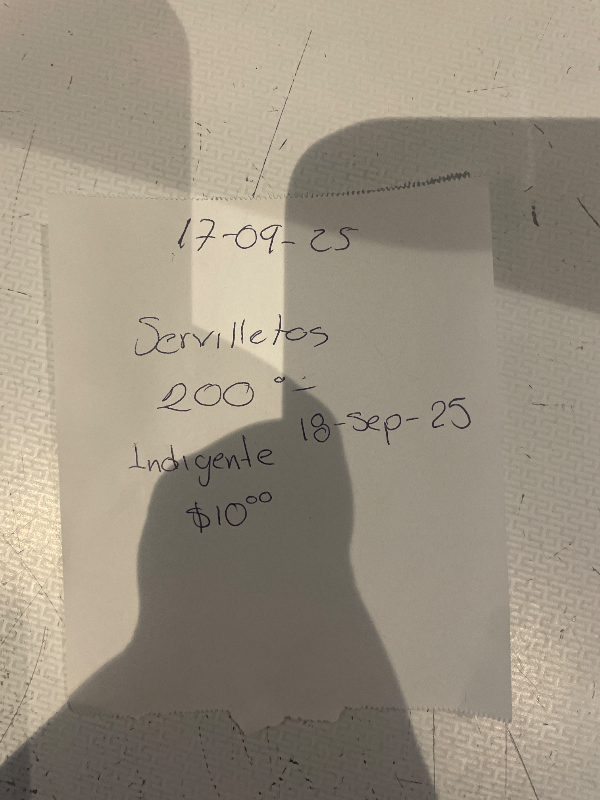 17-09-25
Servilletas
200°-
18-Sep-25
Indigente
$10⁰⁰